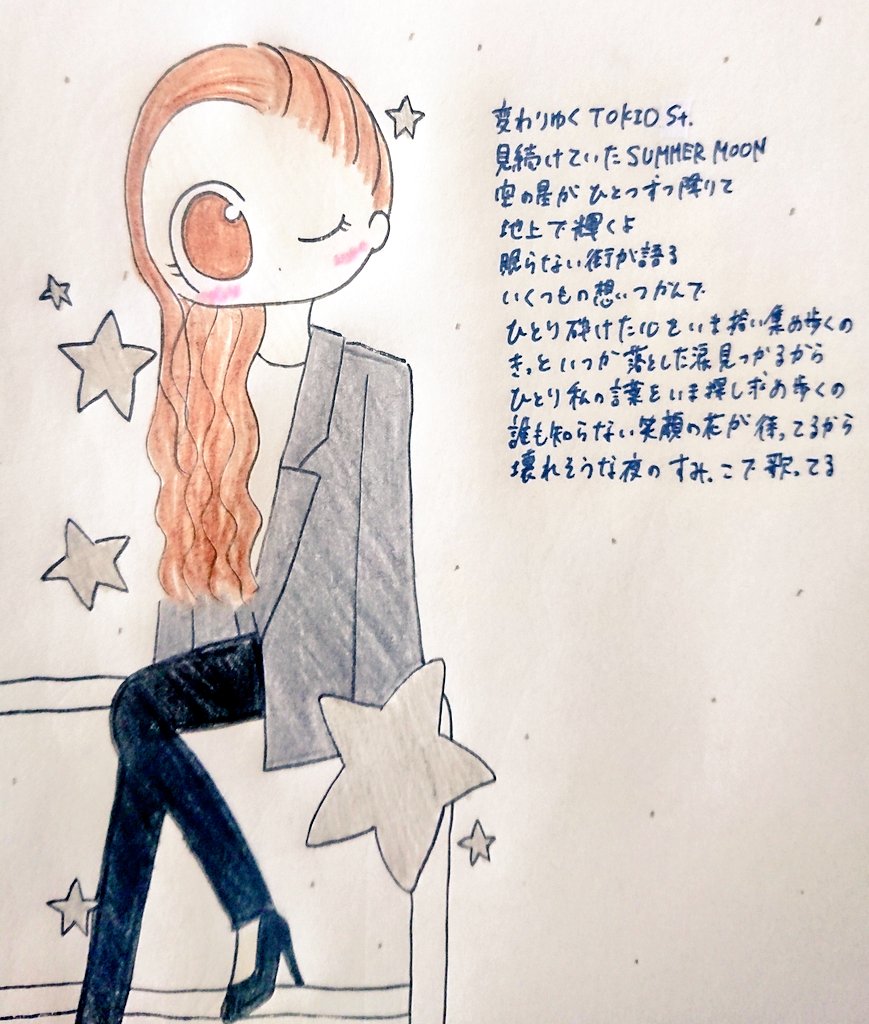 変わりゆく TOKIO St.
見続けていた SUMMER MOON
空の星が ひとつずつ降りて
地上で輝くよ
眠らない街が語る
いくつもの想いつかんで
ひとり砕けた心をいま拾い集め歩くの
きっといつか落とした涙見つかるから
ひとり私の言葉をいま探し求め歩くの
誰も知らない笑顔の花が待ってるから
壊れそうな夜のすみっこで歌ってる